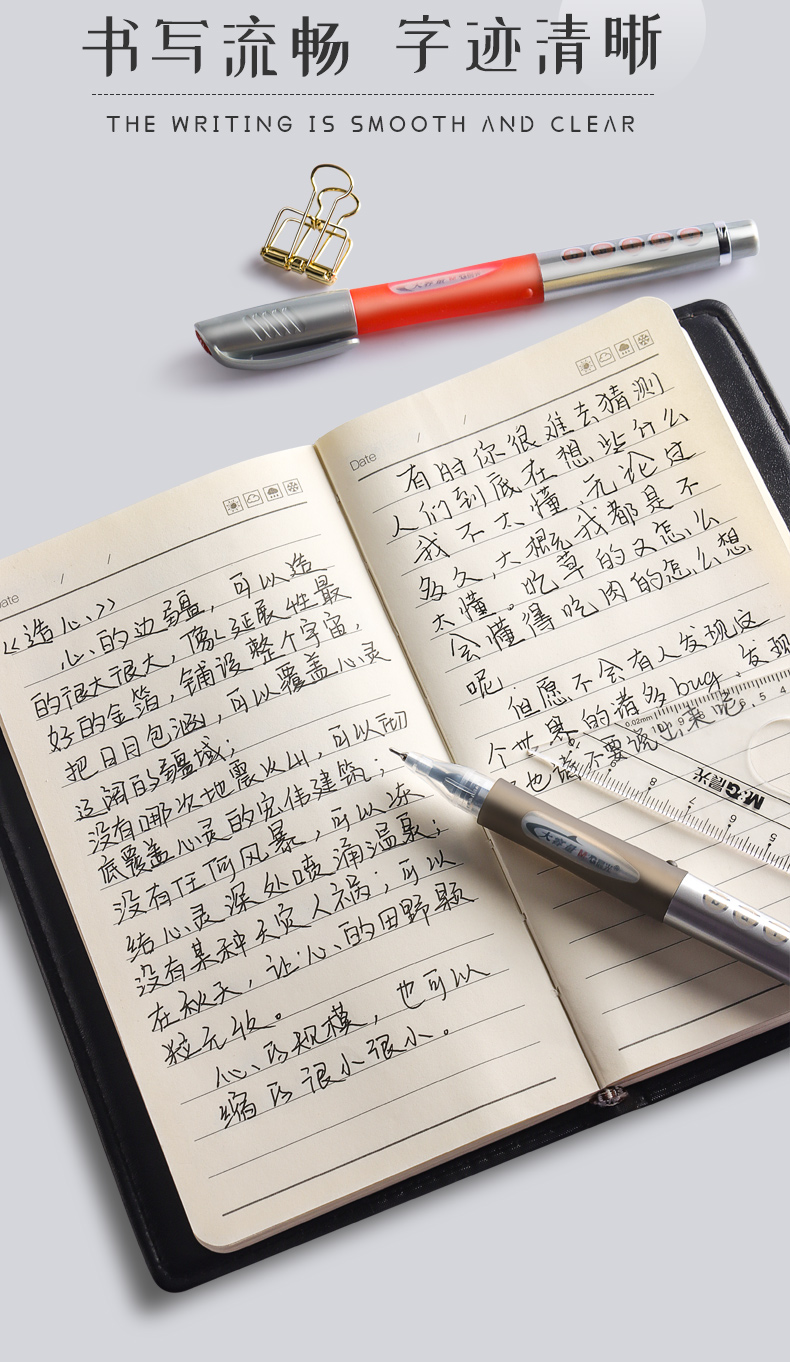 书写流畅 字迹清晰
THE WRITING IS SMOOTH AND CLEAR
Date / /
有时你很难去猜测
人们到底在想些什么
我不太懂,无论过
多久,大概我都是不
太懂。吃草的又怎么
会懂得吃肉的怎么想
呢
但愿不会有人发现这
个世界的诸多bug,发现
也请不要说出来吧
ate / /
《造心》
心的边疆,可以造
的很大很大,像延展性最
好的金箔,铺设整个宇宙,
把日月包涵,可以覆盖心灵
辽阔的疆域;
没有哪次地震火山,可以
底覆盖心灵的宏伟建筑;
没有任何风暴,可以冻
结心灵深处喷涌温泉;
没有某种天灾人祸;可以
在秋天,让心的田野颗
粒无收。
心的规模,也可以
缩的很小很小。
0.02mm
M&G晨光
10 9 8 7 6 5 4
8 7 6 5